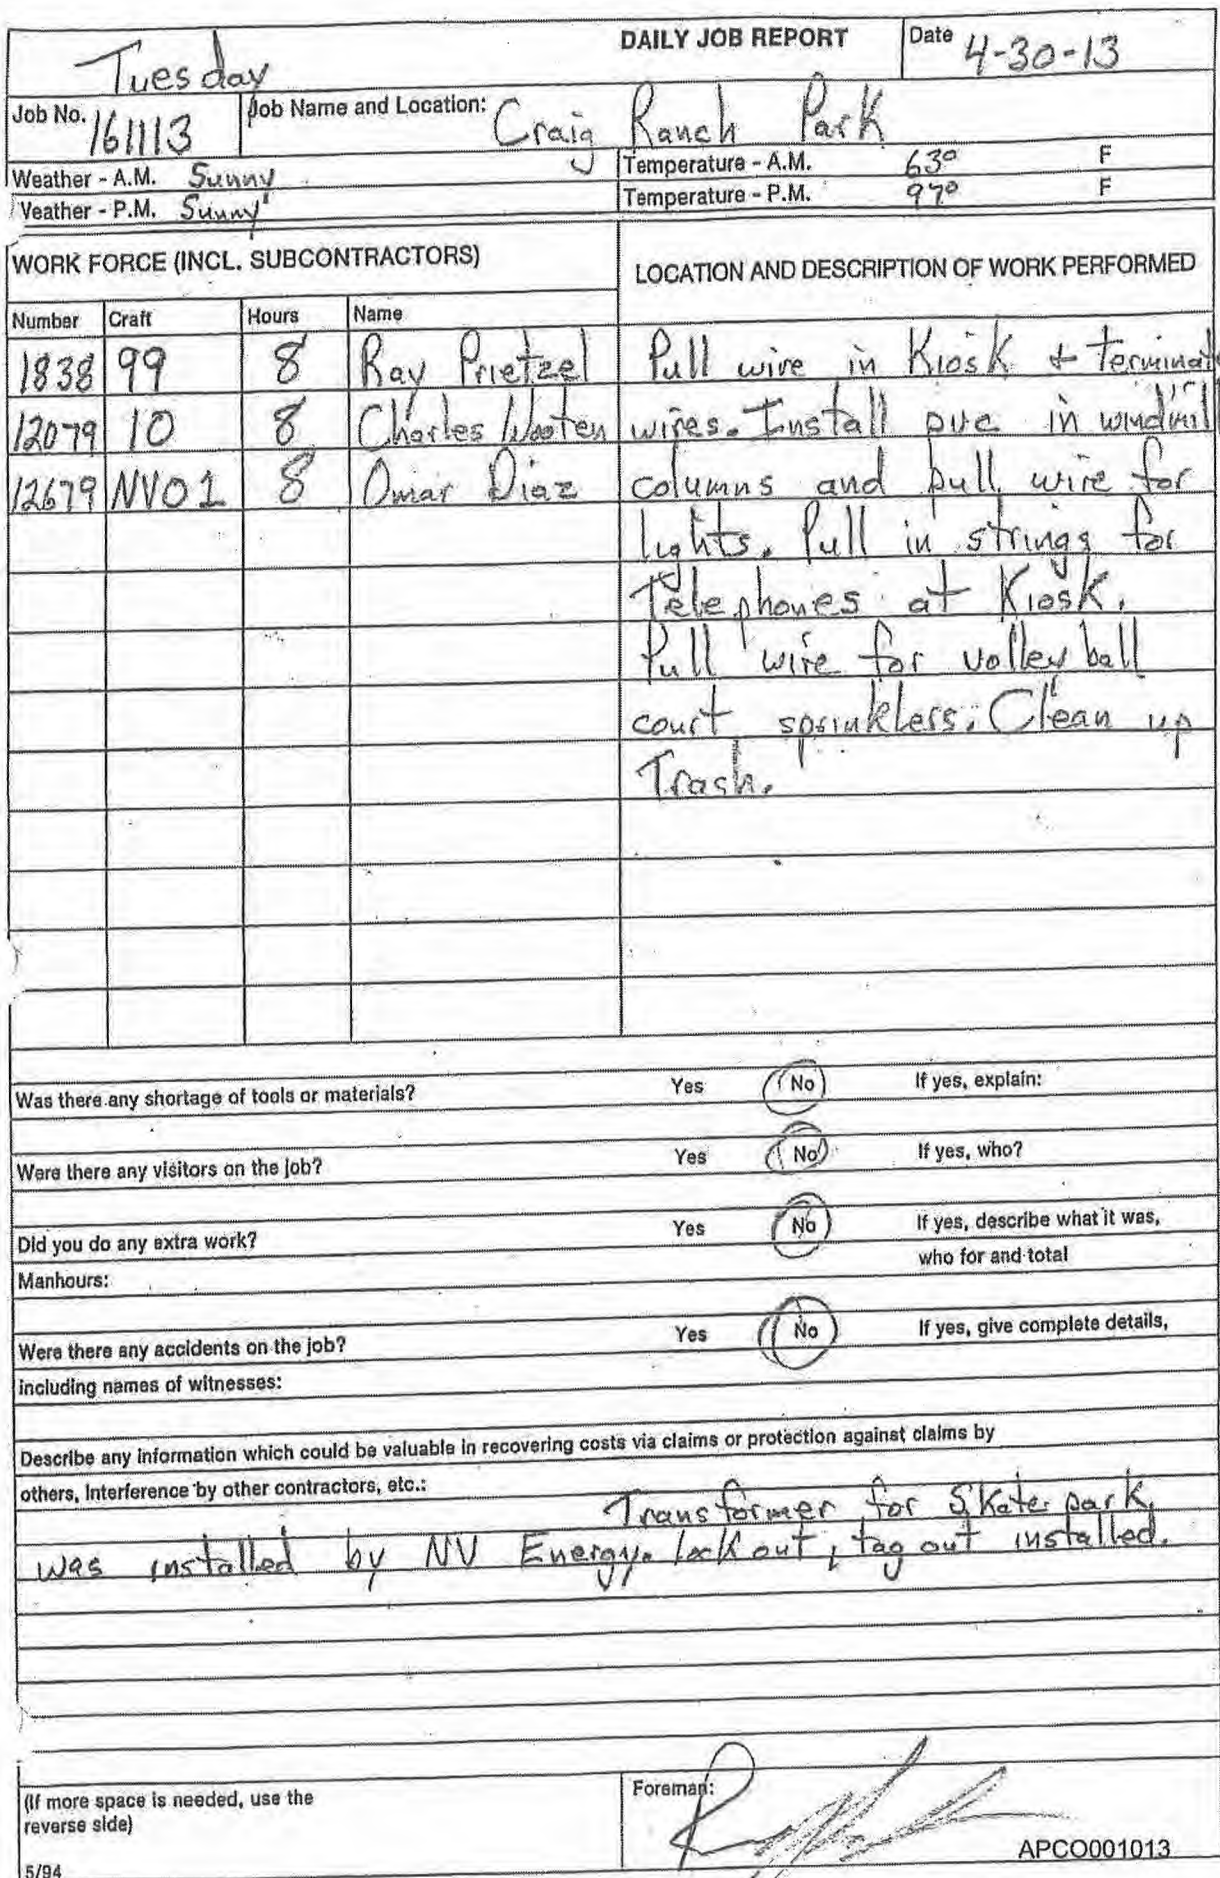 DAILY JOB REPORT
Date 4-30-13
Tuesday
Job No. 161113
Job Name and Location: Craig Ranch Park
Weather - A.M. Sunny
Temperature - A.M. 63° F
Veather - P.M. Sunny
Temperature - P.M. 97° F
WORK FORCE (INCL. SUBCONTRACTORS)
LOCATION AND DESCRIPTION OF WORK PERFORMED
Number Craft Hours Name
1838 99 8 Ray Prietzel
Pull wire in Kiosk + terminate
12079 10 8 Charles Wooten
wires. Install pvc in windmill
12679 NV01 8 Omar Diaz
columns and pull wire for
lights. Pull in strings for
Telephones at Kiosk.
Pull wire for volley ball
court sprinklers. Clean up
Trash.
Was there any shortage of tools or materials? Yes No If yes, explain:
Were there any visitors on the job? Yes No If yes, who?
Did you do any extra work? Yes No If yes, describe what it was,
who for and total
Manhours:
Were there any accidents on the job? Yes No If yes, give complete details,
including names of witnesses:
Describe any information which could be valuable in recovering costs via claims or protection against claims by
others, Interference by other contractors, etc.:
Transformer for Skate park
was installed by NV Energy. lock out, tag out installed.
(If more space is needed, use the
reverse side)
Foreman:
5/94
APCO001013